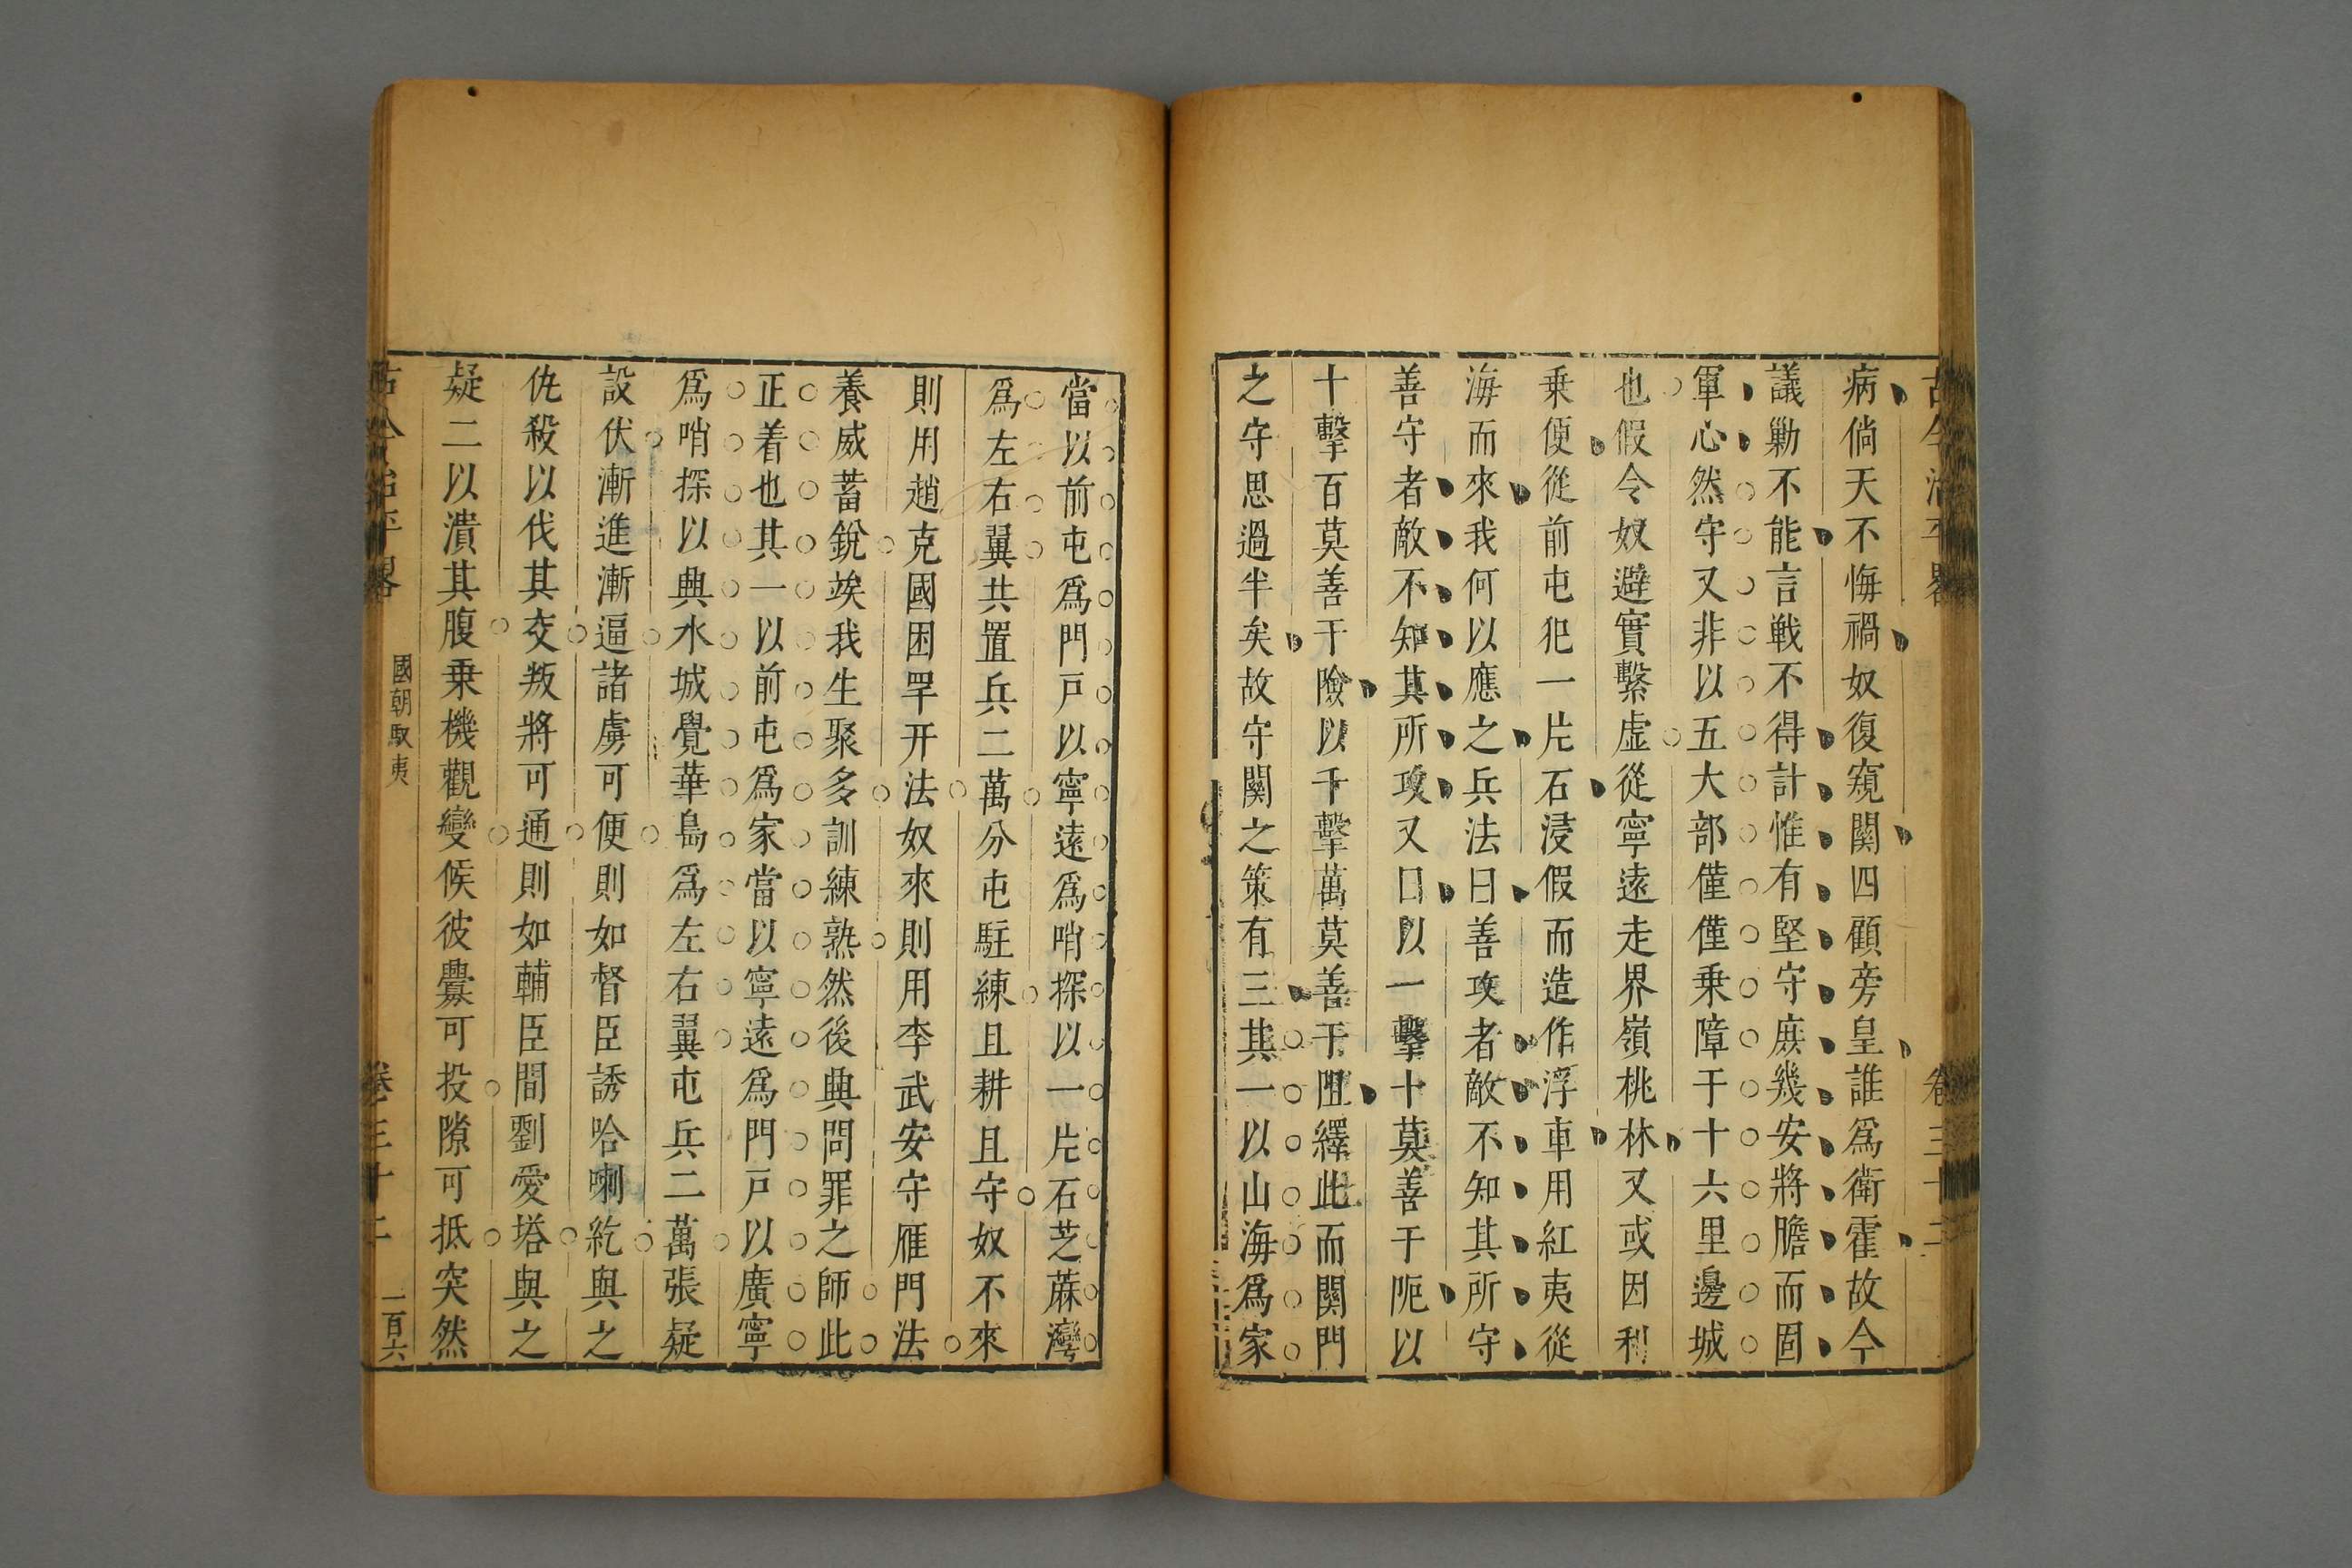 古今治平畧 卷三十二
病倘天不悔禍奴復窺關四顧旁皇誰爲衛霍故今
議勦不能言戰不得計惟有堅守庶幾安將膽而固
軍心然守又非以五大部僅僅乗障于十六里邊城
也假令奴避實繫虛從寧遠走界嶺桃林又或因利
乗便從前屯犯一片石浸假而造作浮車用紅夷從
海而來我何以應之兵法曰善攻者敵不知其所守
善守者敵不知其所攻又曰以一擊十莫善于阨以
十擊百莫善于險以千擊萬莫善于阻繹此而關門
之守思過半矣故守關之策有三其一以山海爲家
當以前屯爲門戸以寧遠爲哨探以一片石芝蔴灣
爲左右翼共置兵二萬分屯駐練且耕且守奴不來
則用趙充國困罕开法奴來則用李武安守雁門法
養威蓄銳竢我生聚多訓練熟然後與問罪之師此
正着也其一以前屯爲家當以寧遠爲門戸以廣寧
爲哨探以與水城覺華島爲左右翼屯兵二萬張疑
設伏漸進漸逼諸虜可便則如督臣誘哈喇紇與之
仇殺以伐其交叛將可通則如輔臣間劉愛塔與之
疑二以潰其腹乗機觀變候彼釁可投隙可抵突然
古今治平畧 國朝馭夷 卷三十二 一百六